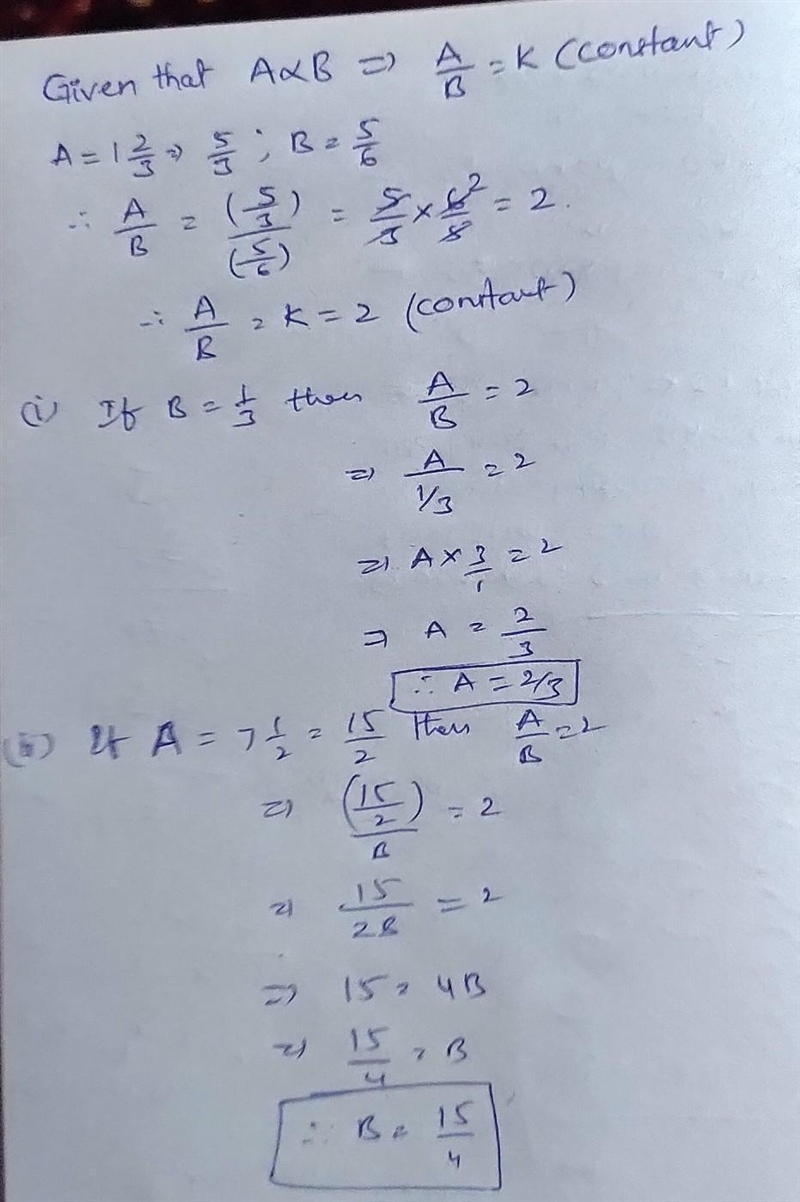 Given that A∝B ⇒ A/B = K (constant)
A = 1 2/3 ⇒ 5/3 ; B = 5/6
∴ A/B = (5/3)/(5/6) = 5/3 × 6²/5 = 2.
∴ A/B = K = 2 (constant)
(i) If B = 1/3 then A/B = 2
⇒ A/1/3 = 2
⇒ A × 3/1 = 2
⇒ A = 2/3
∴ A = 2/3
(ii) If A = 7 1/2 = 15/2 then A/B = 2
⇒ (15/2)/B = 2
⇒ 15/2B = 2
⇒ 15 = 4B
⇒ 15/4 = B
∴ B = 15/4